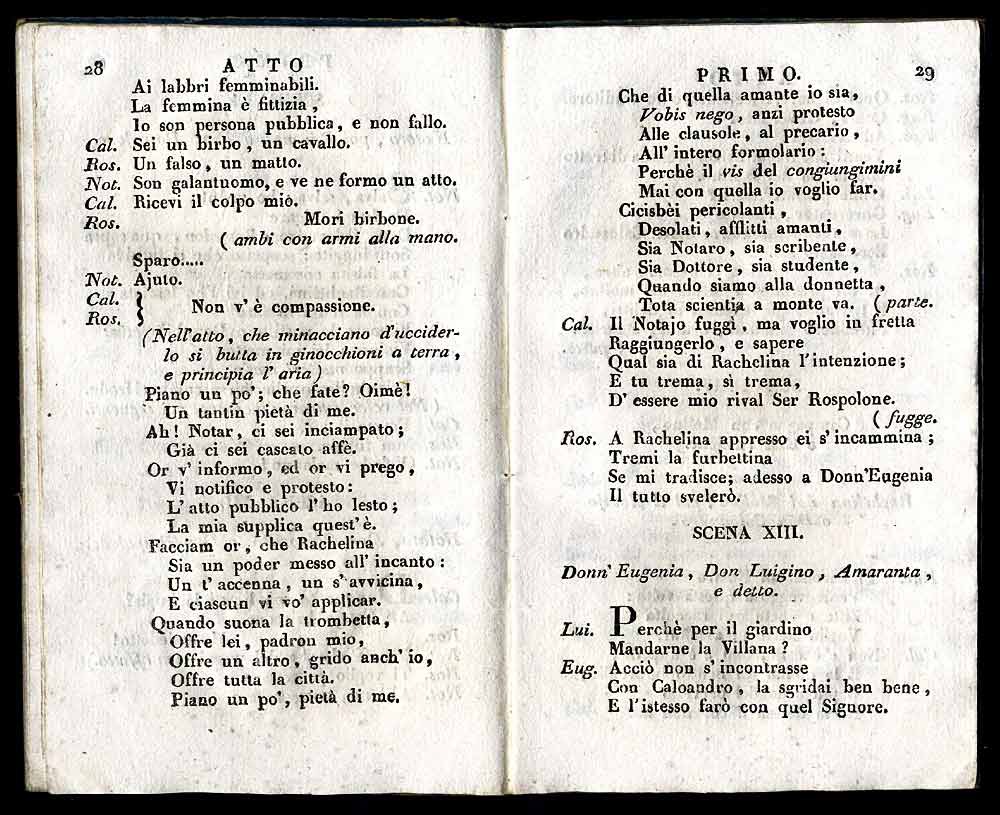 28 ATTO
Ai labbri femminabili.
La femmina è fittizia,
Io son persona pubblica, e non fallo.
Cal. Sei un birbo, un cavallo.
Ros. Un falso, un matto.
Not. Son galantuomo, e ve ne formo un atto.
Cal. Ricevi il colpo mio.
Ros. Mori birbone.
( ambi con armi alla mano.
Sparo.....
Not. Ajuto.
Cal. }
Ros. } Non v'è compassione.
(Nell'atto, che minacciano d'ucider-
lo si butta in ginocchioni a terra,
e principia l'aria)
Piano un po'; che fate? Oimè!
Un tantin pietà di me.
Ah! Notar, ci sei inciampato;
Già ci sei cascato affè.
Or v'informo, ed or vi prego,
Vi notifico e protesto:
L'atto pubblico l'ho lesto;
La mia supplica quest'è.
Facciam or, che Rachelina
Sia un poder messo all'incanto:
Un t'accenna, un s'avvicina,
E ciascun vi vo' applicar.
Quando suona la trombetta,
Offre lei, padron mio,
Offre un altro, grido anch'io,
Offre tutta la città.
Piano un po', pietà di me.
PRIMO. 29
Che di quella amante io sia,
Vobis nego, anzi protesto
Alle clausole, al precario,
All'intero formolario:
Perchè il vis del congiungimini
Mai con quella io voglio far.
Cicisbèi pericolanti,
Desolati, afflitti amanti,
Sia Notaro, sia scribente,
Sia Dottore, sia studente,
Quando siamo alla donnetta,
Tota scientia a monte va. (parte.
Cal. Il Notajo fuggì, ma voglio in fretta
Raggiungerlo, e sapere
Qual sia di Rachelina l'intenzione;
E tu trema, sì trema,
D'essere mio rival Ser Rospolone.
( fugge.
Ros. A Rachelina appresso ei s'incammina;
Tremi la furbettina
Se mi tradisce; adesso a Donn'Eugenia
Il tutto svelerò.
SCENA XIII.
Donn'Eugenia, Don Luigino, Amaranta,
e detto.
Lui. Perchè per il giardino
Mandarne la Villana?
Eug. Acciò non s'incontrasse
Con Caloandro, la sgridai ben bene,
E l'istesso farò con quel Signore.